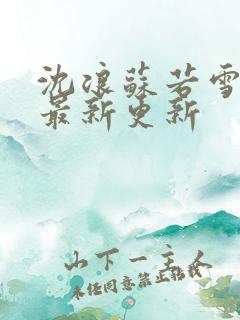 沈浪蘇若雪
最新更新
山下一主人
未經同意禁止轉載